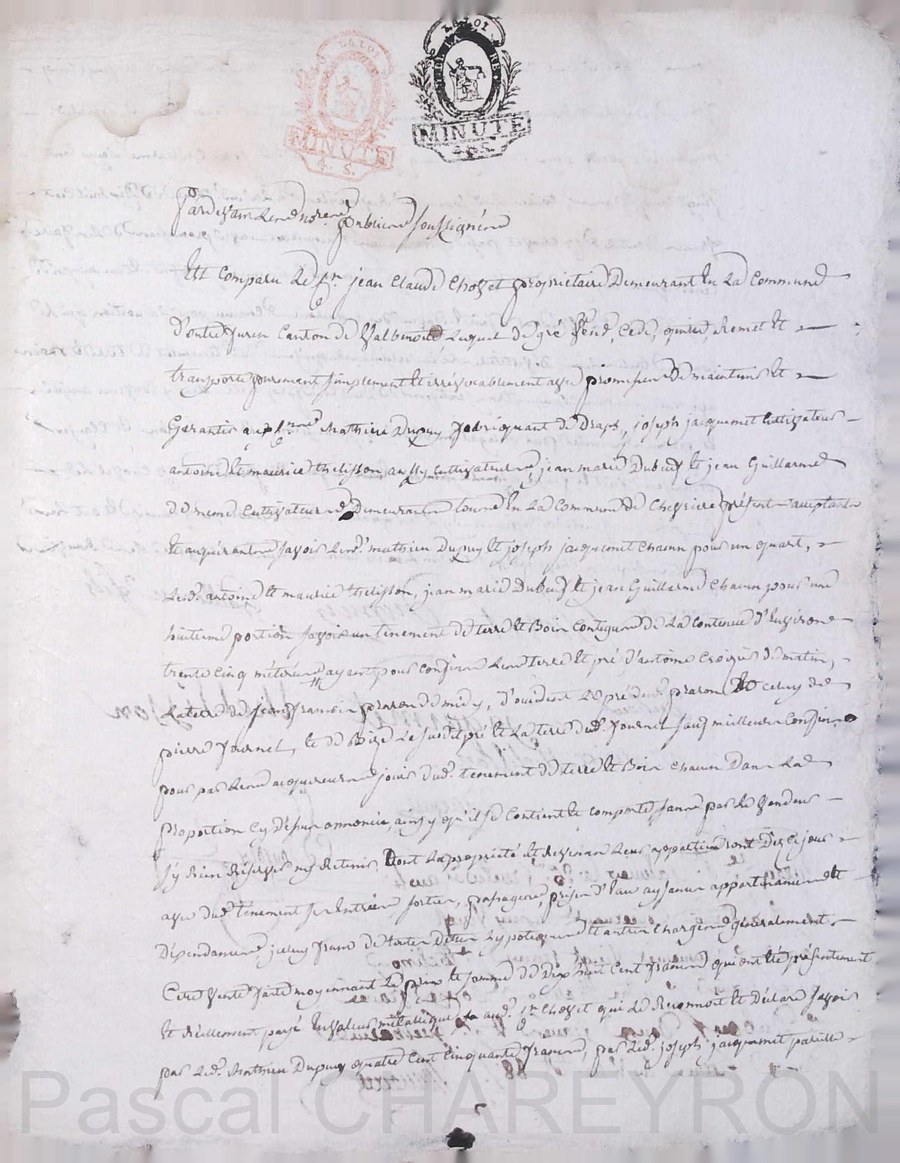 LA LOI
MINUTE
4. S.
LA LOI
MINUTE
4 S.
Pardevant les nores publics soussignés
Est comparu le sr. jean Claude Chozet propriétaire Demeurant en La Commune
D'outre furan Canton de Valbenoite Lequel de gré Vend, Cede, quitte, Remet et
transporte purement simplement et irrévocablement avec promesse de maintenir et
Garantir aux Srs. Mathieu Dupuy fabriquant de Draps, joseph jacquemet Cultivateur
antoine et maurice thelisson aussy Cultivateurs jean marie Dubeuf et jean Guillarme
De même Cultivateurs Demeurants tous en La Commune de Chevrieres présents acceptants
et acquérants savoir Lesd. mathieu Dupuy et joseph jacquemet Chacun pour un quart,
Lesd. antoine et maurice thelisson, jean marie Dubeuf et jean Guillarme Chacun pour une
huitieme portion savoir un tenement de terre et Bois contigus de La contenue d'Environs
trente Cinq métérées ayant pour confins Les terre et pré d'antoine de matin,
La terre de jean francois de midy, d'occident Le pré dud. et celuy de
pierre Journet, et de Bize Le susd. pré et La terre dud. Journet sauf meilleurs Confins
pour par Lesd. acquereurs jouir dud. tenement de terre et Bois Chacun Dans La
proportion Cy dessus annoncée, ainsy qu'il se Contient et comporte sans par Le Vendeur
s'y rien Réserver ny Retenir, Dont La propriété et Leur appartiendront Dès Ce jour
avec dud. tenement ses Entrées sorties, passages, prises d'Eau aysances appartenances et
Dépendances, jceluy franc de toutes Dettes hypoteques et autres Charges généralement.
Cette Vente faite moyennant Le prix et somme de Dix huit Cent francs qui ont été présentement
et Réellement payé En Valeur métallique aud. Sr. Chozet qui Le Reconnoit et Déclare savoir
par Led. Mathieu Dupuy quatre Cent Cinquante francs, par Led. joseph jacquemet pareille
Pascal CHAREYRON